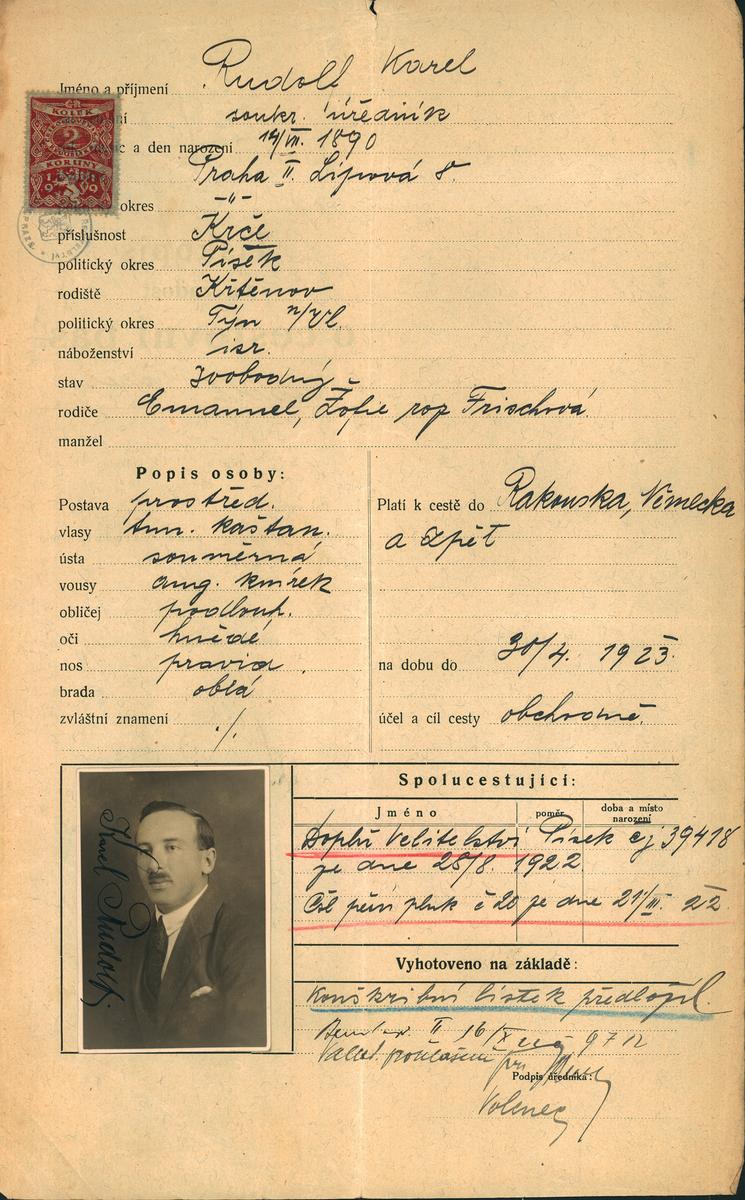 Jméno a příjmení Rudolf Karel
soukr. úředník
a den narození 14/VII. 1890
Praha II. Lípová 8.
okres -"-
příslušnost Krč
politický okres Písek
rodiště Křtěnov
politický okres Týn n/Vl.
náboženství isr.
stav svobodný
rodiče Emanuel, Žofie roz Frischová
manžel
KOLEK
2
KORUNY
1919
Popis osoby:
Postava prostřed.
vlasy tm. kaštan.
ústa souměrná
vousy ang. knírek
obličej podlouh.
oči hnědé
nos pravid.
brada oblá
zvláštní znamení ./.
Platí k cestě do Rakouska, Německa
a zpět
na dobu do 30/4. 1923.
účel a cíl cesty obchodně.
Karel Rudolf
Spolucestující:
Jméno
poměr
doba a místo
narození
Doplň Velitelství Písek čj 39418
ze dne 28/8. 1922
Čsl pěší pluk č 28 ze dne 21/III. 22
Vyhotoveno na základě:
Konskribní lístek předložil.
II 16/X
Podpis úředníka:
Volenec